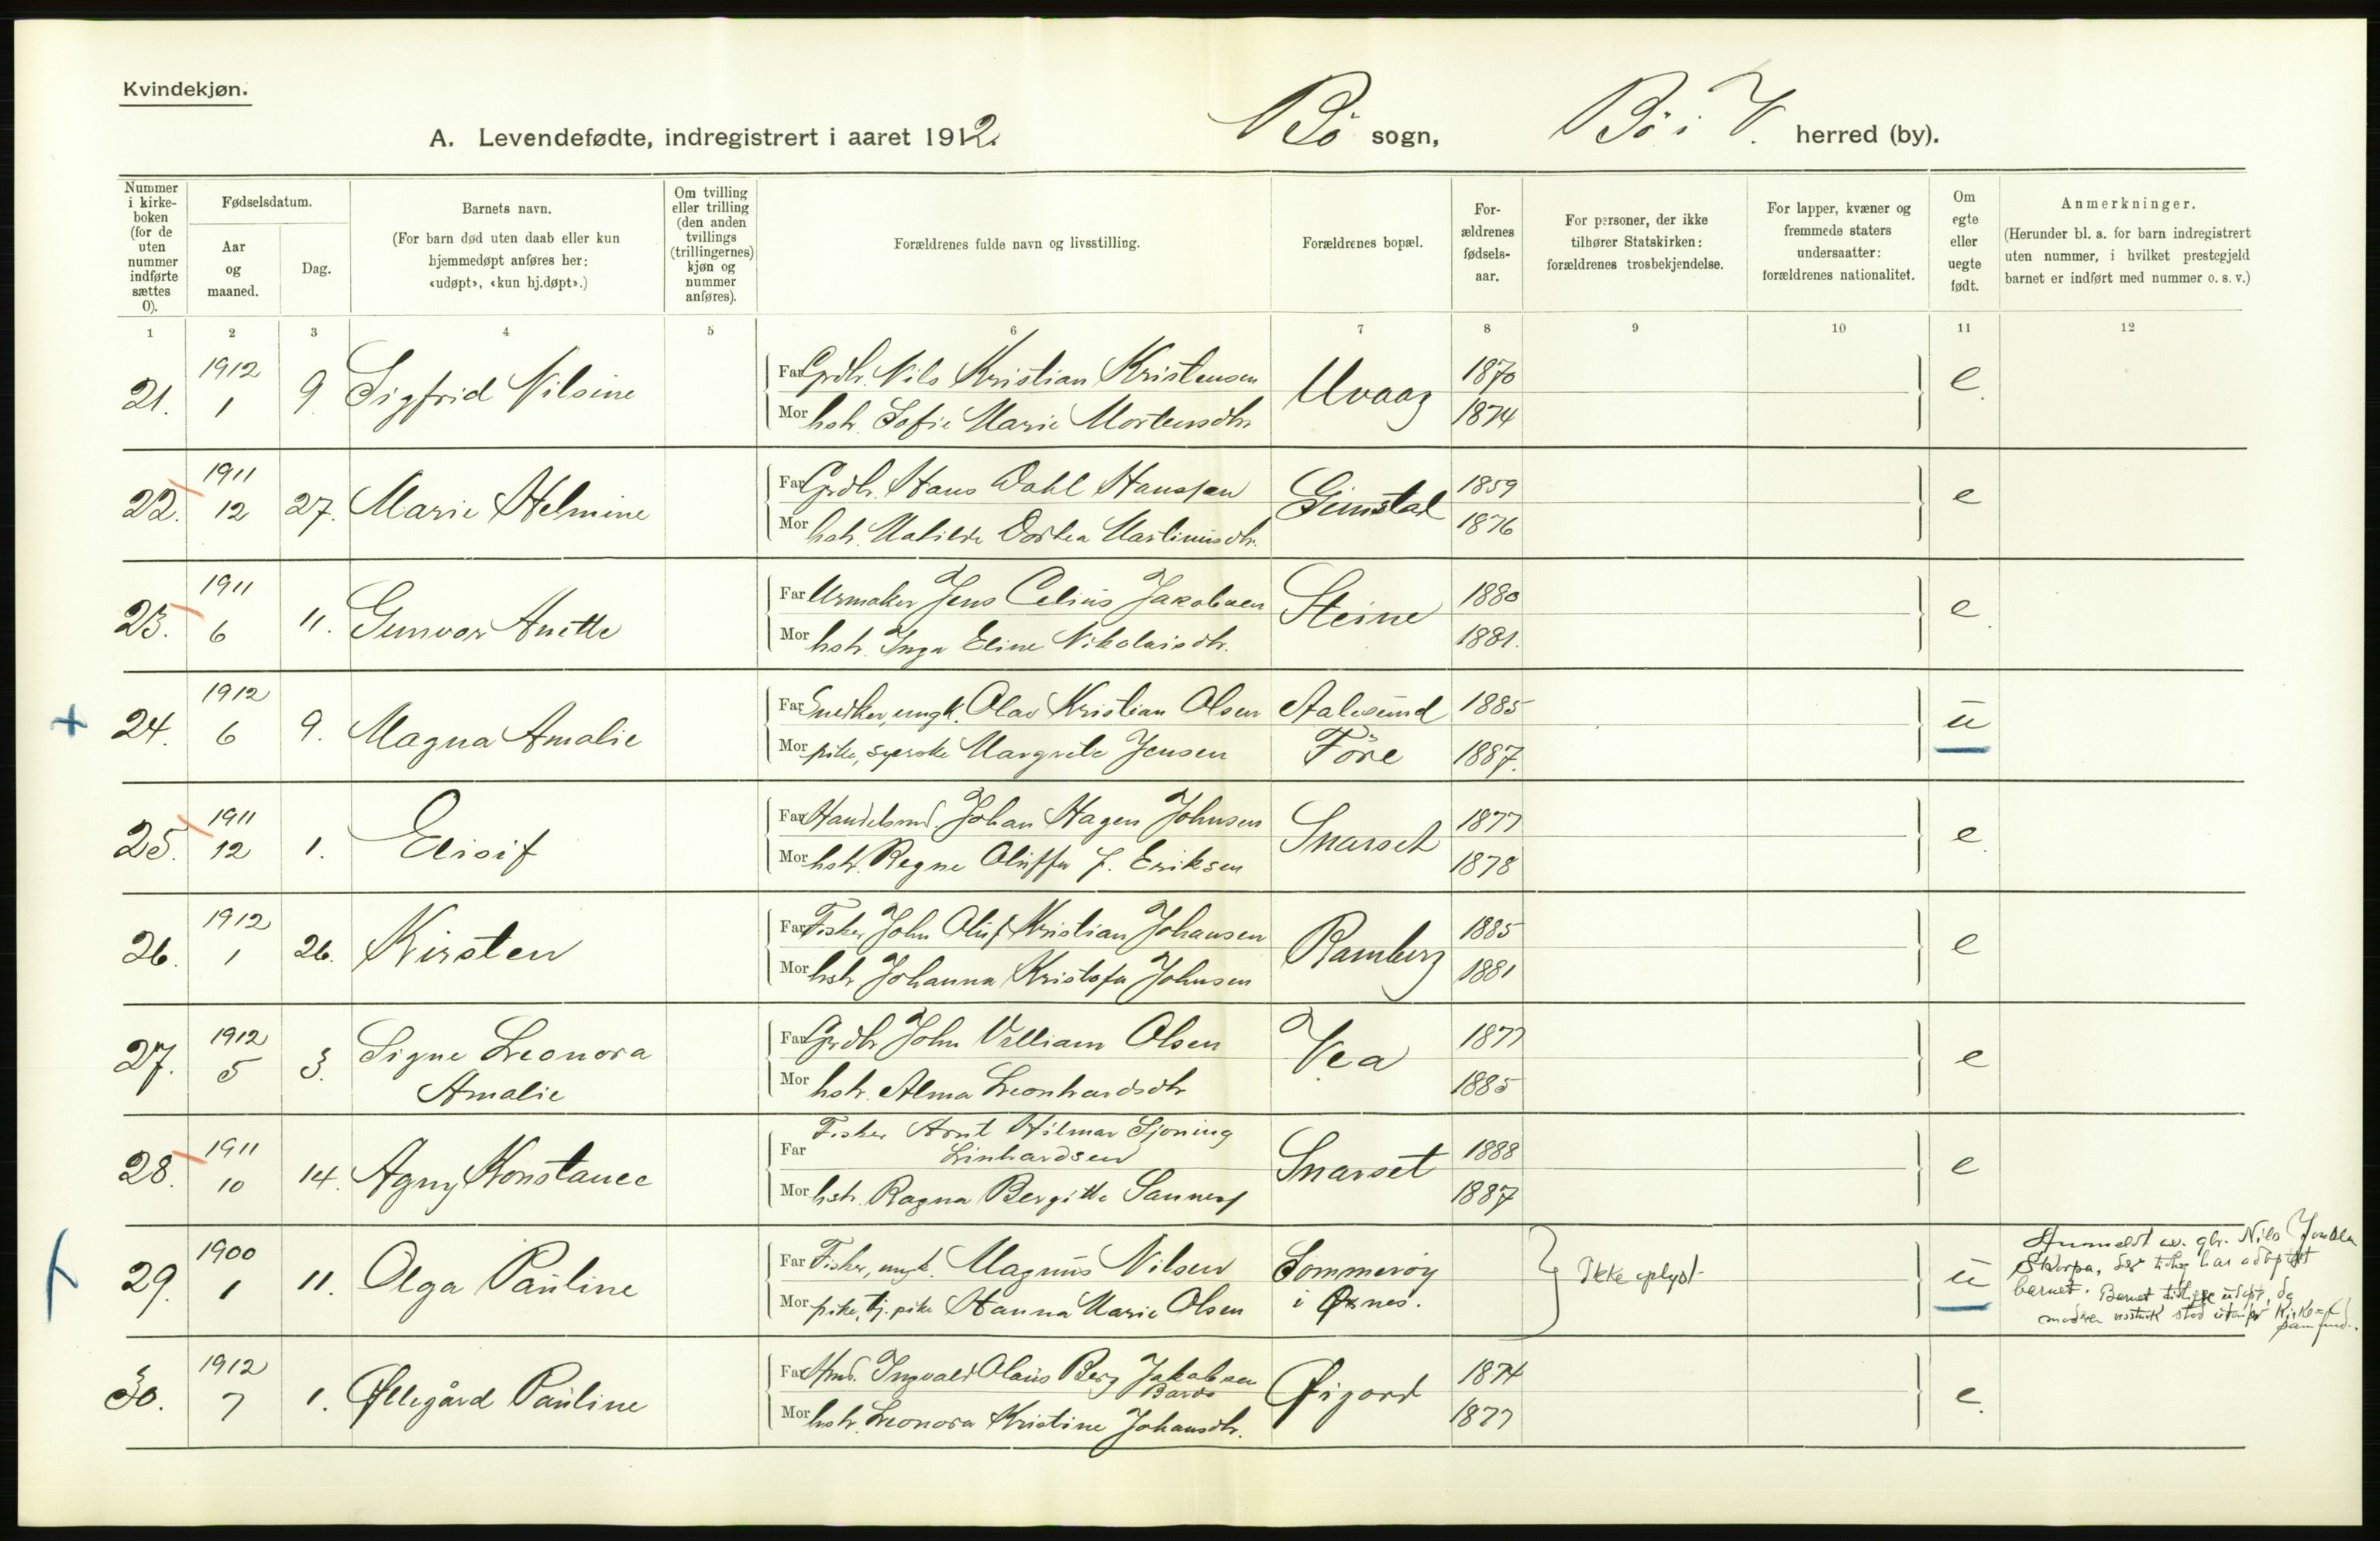 Kvindekjøn.
A. Levendefødte, indregistrert i aaret 1912. Bö sogn, Bö i V. herred (by).
Nummer i kirke- boken (for de uten nummer indførte sættes 0).
Fødselsdatum.
Aar og maaned.
Dag.
Barnets navn.
(For barn død uten daab eller kun hjemmedøpt anføres her: «udøpt», «kun hj.døpt».)
Om tvilling eller trilling (den anden tvillings (trillingernes) kjøn og nummer anføres).
Forældrenes fulde navn og livsstilling.
Forældrenes bopæl.
For- ældrenes fødsels- aar.
For personer, der ikke tilhører Statskirken: forældrenes trosbekjendelse.
For lapper, kvæner og fremmede staters undersaatter: forældrenes nationalitet.
Om egte eller uegte født.
Anmerkninger.
(Herunder bl. a. for barn indregistrert uten nummer, i hvilket prestegjeld barnet er indført med nummer o. s. v.)
1 2 3 4 5 6 7 8 9 10 11 12
21. 1912 1 9 Sigfrid Nilsine
Far Grdbr. Nils Kristian Kristensen Uvaag 1870 e.
Mor hstr. Sofie Marie Mortensdtr 1874
22. 1911 12 27. Marie Helmine
Far Grdbr. Hans Dahl Hanssen Gimstad 1859 e
Mor hstr. Matilde Dortea Martinusdtr. 1876
23. 1911 6 11. Gunvor Anette
Far Urmaker Jens Celius Jakobsen Steine 1880 e.
Mor hstr. Inga Eline Nikolaisdtr. 1881.
24. 1912 6 9. Magna Amalie
Far Snedker, ungk. Olav Kristian Olsen Aalesund 1885 u
Mor pike, syerske Margrete Jensen Före 1887.
25. 1911 12 1. Elisif
Far Handelsmd. Johan Hagen Johnsen Snarset 1877 e.
Mor hstr. Regne Oluffa f. Eriksen 1878
26. 1912 1 26. Kirsten
Far Fisker John Oluf Kristian Johansen Ramberg 1885 e
Mor hstr Johanna Kristofa Johnsen 1881
27. 1912 5 3. Signe Leonora Amalie
Far Grdbr John Villiam Olsen Vea 1877 e
Mor hstr. Alma Leonhardsdtr 1885
28. 1911 10 14. Agny Konstance
Far Fisker Arnt Hilmar Sjoning Linhardsen Snarset 1888 e
Mor hstr. Ragna Bergitte 1887
29. 1900 1 11. Olga Pauline
Far Fisker, ungk. Magnus Nilsen Sommeröy Ikke oplyst u
Mor pike, tj. pike Hanna Marie Olsen i Øxnes.
Anmeldt av gbr. Nils
Skorpa, har adoptert
barnet. Barnet tidligere udöpt, da
moderen stod utenfor Kirke-
samfund.
30. 1912 7 1. Øllegård Pauline
Far Hmd. Ingvald Olaus Berg Jakobsen Øigard 1874 e.
Mor hstr. Leonora Kristine Johansdtr. 1877